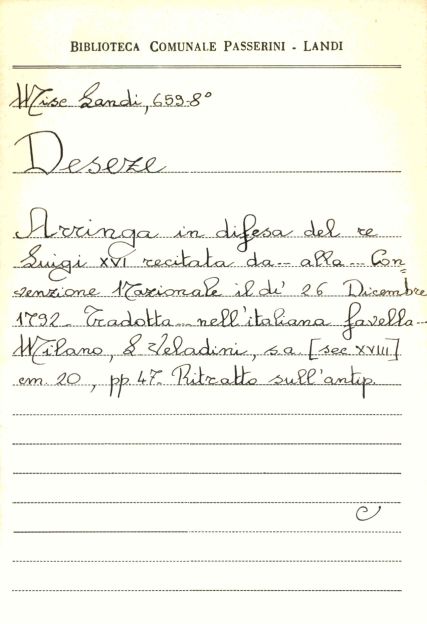 BIBLIOTECA COMUNALE PASSERINI - LANDI
Misc Landi, 659-8°
Deseze
Arringa in difesa del re
Luigi XVI recitata da... alla... Con=
venzione Nazionale il dì 26 Dicembre
1792. Tradotta nell'italiana favella.
Milano, L. Veladini, s.a. [sec XVIII]
cm 20, pp. 47. Ritratto sull'antip.
C